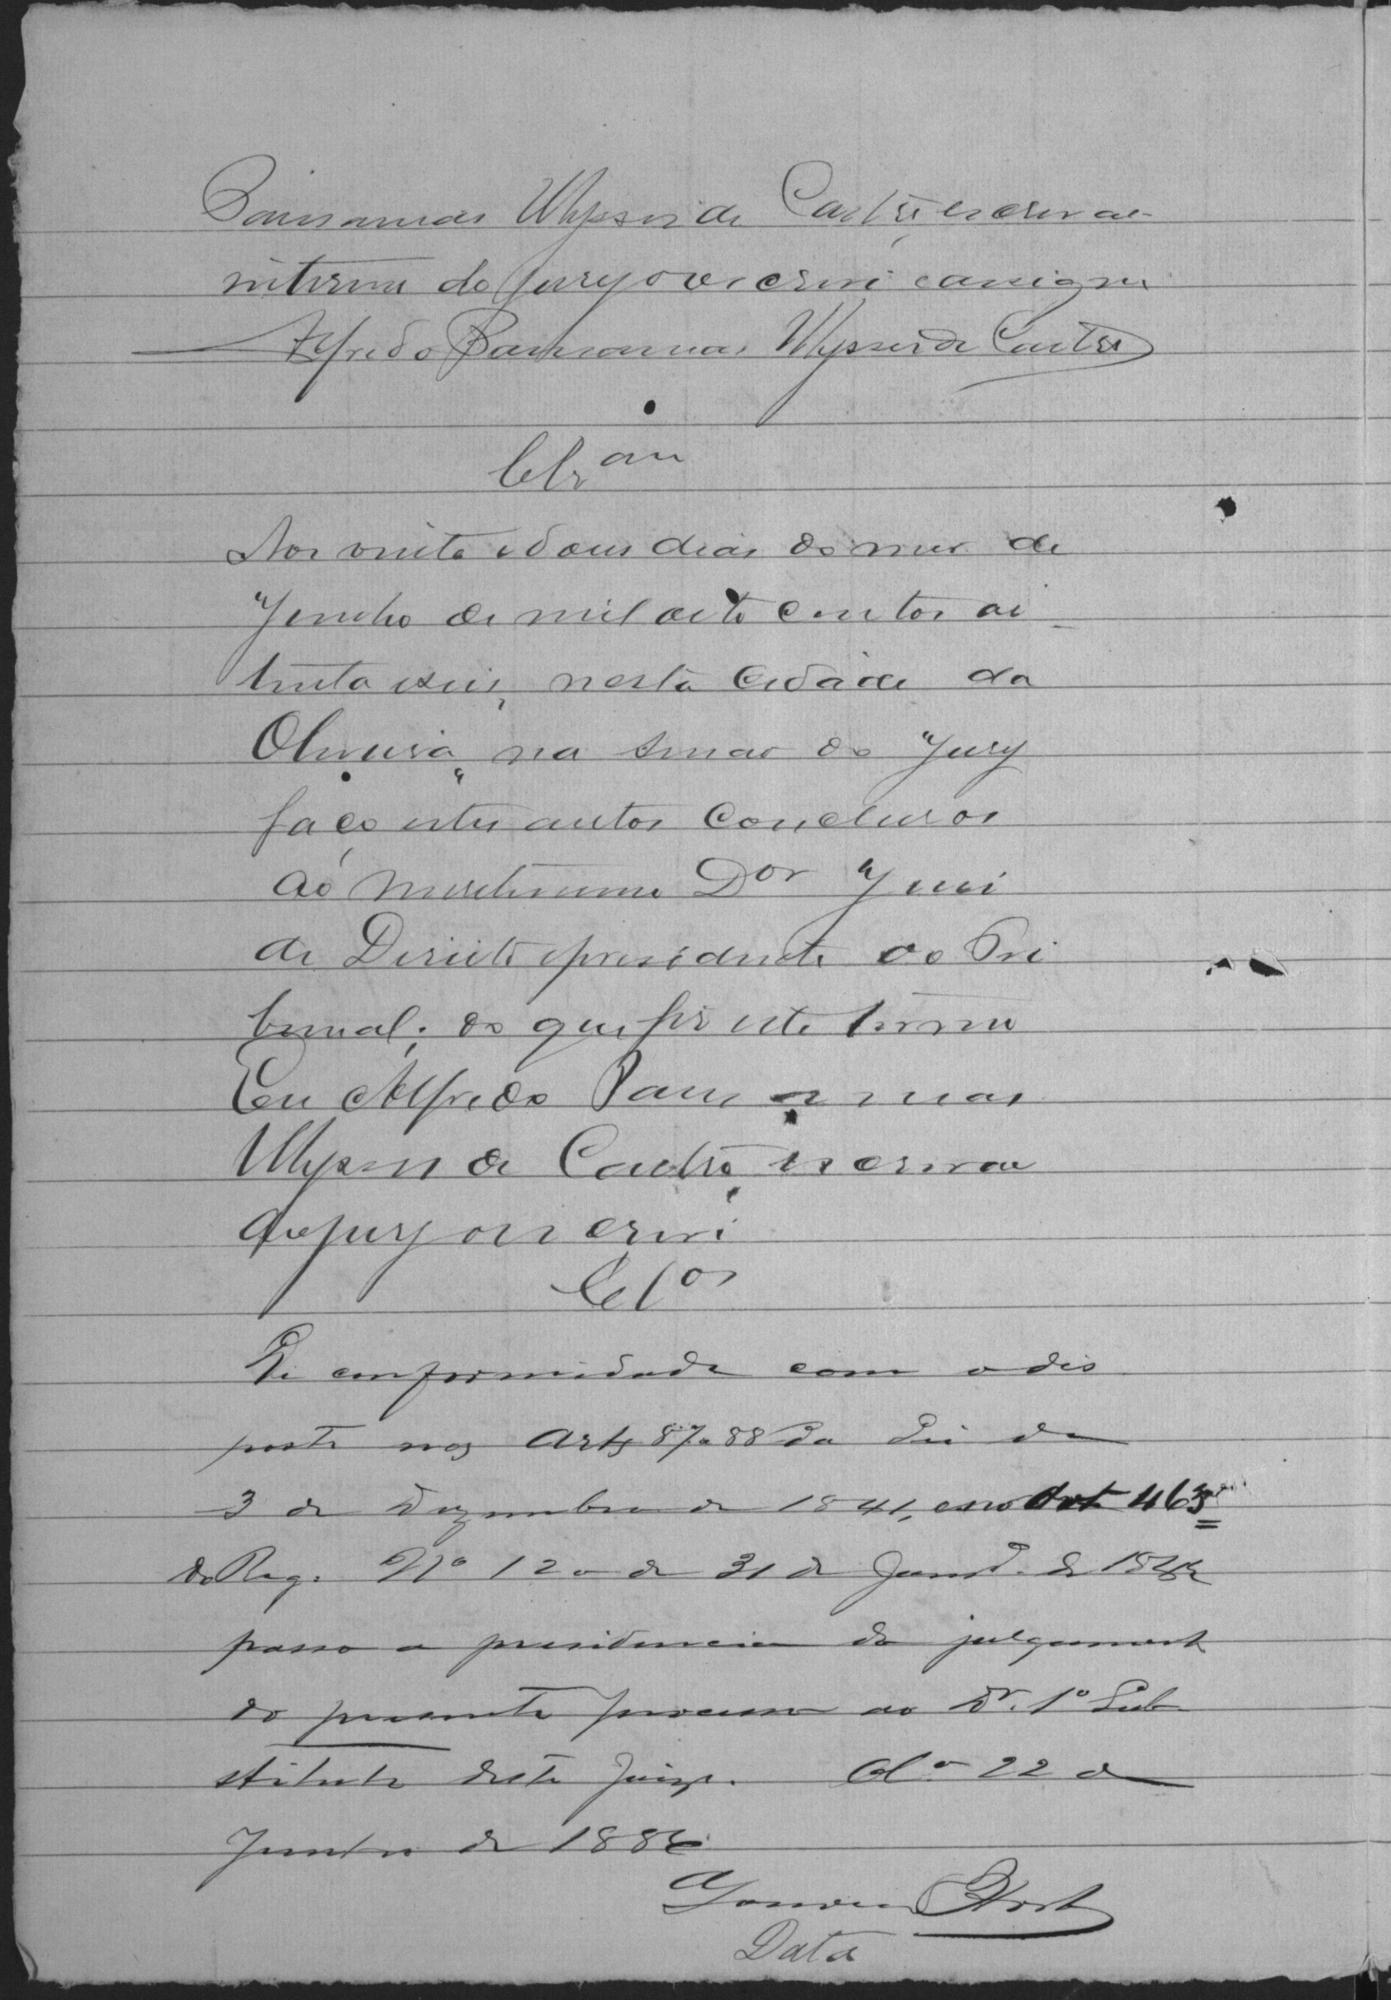 Paisamaas Ulysses de Castro, escrivao
interino do Jury o escrevi e assigno
Alfredo Paisamaas Ulysses de Castro
Clsam
Aos vinte e dous dias do mez de
Junho de mil oito centos oi
tenta e seis, nesta Cidade da
Oliveira, na sessao do Jury
faço estes autos Conclusos
ao meretissimo Dor Juis
de Direito presidente do Tri
bunal; do que fiz este termo
Eu Alfredo
Ulysses de Castro, escrivao
do jury o escrevi
Clos
De conformidade com o dis
posto nos Arts 87 e 88 da Lei de
3 de Dezembro de 1841, e no Art 463
do Reg. No 120 de 31 de Janro. de 1842
passo a presidencia do julgamento
do presente processo ao Dr. 1o Sub
stituto deste Juizo. Ola 22 de
Junho de 1886
Data